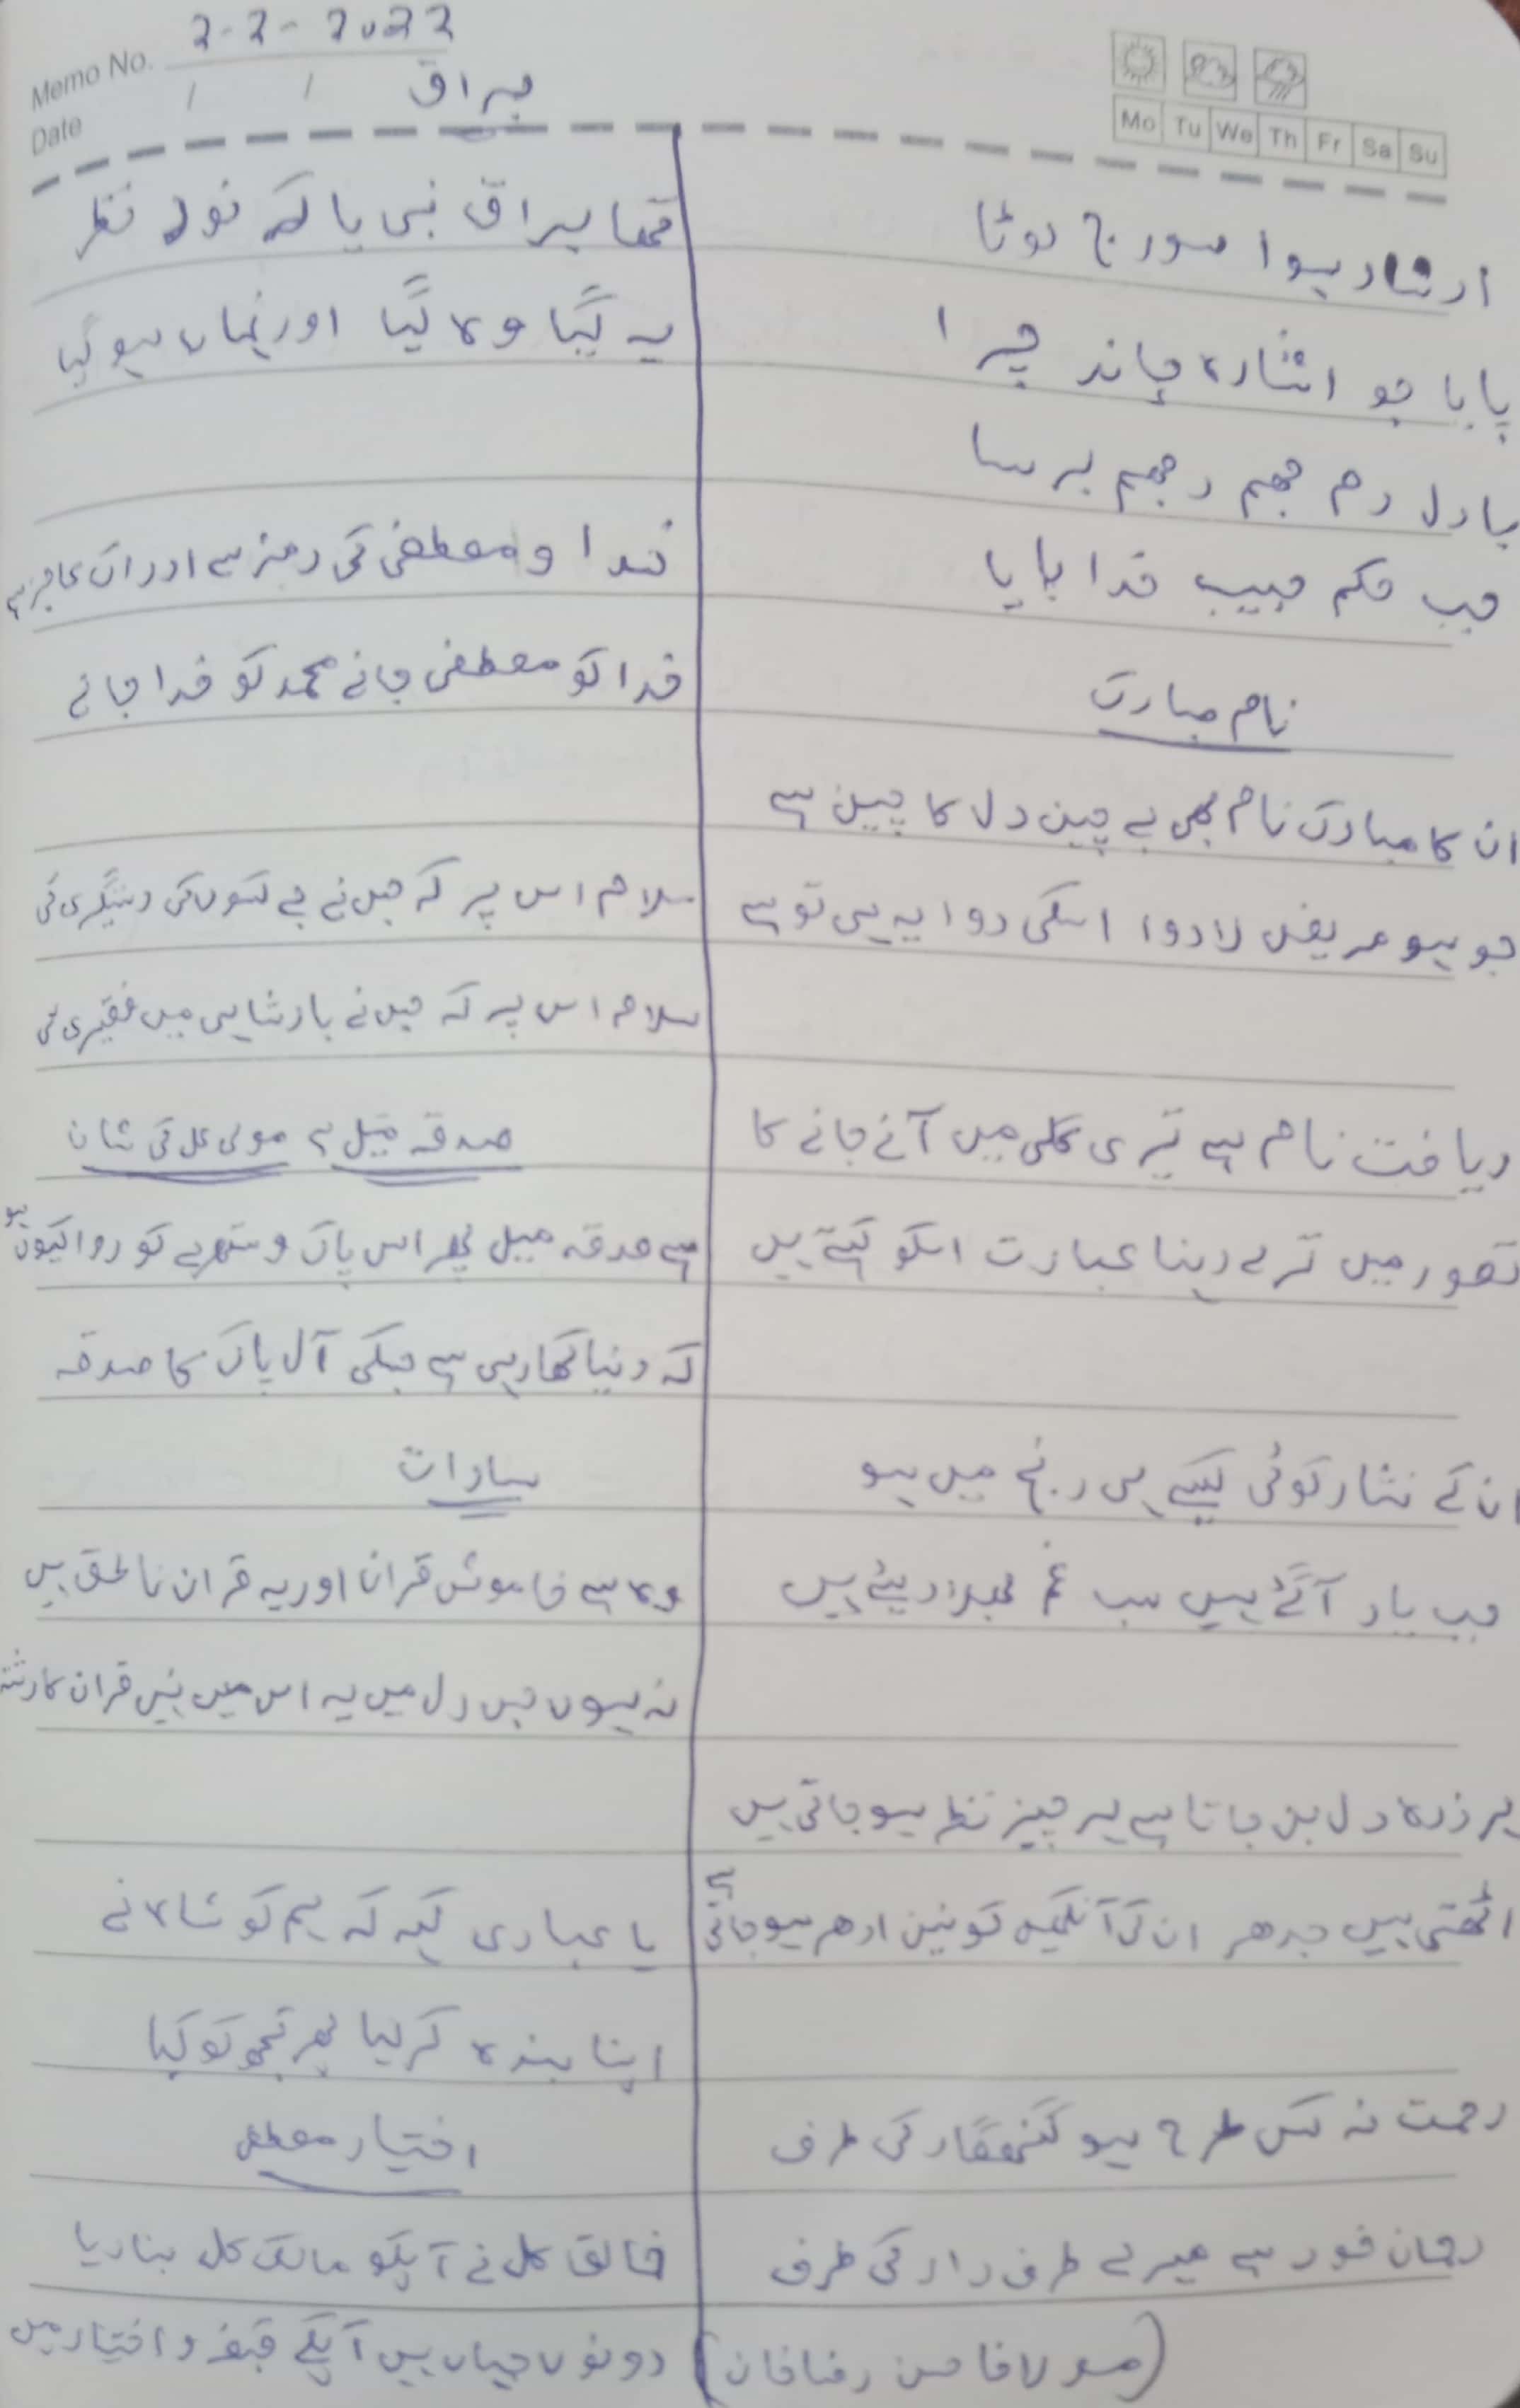 Memo No. 2-2-2022
Date / /
Mo Tu We Th Fr Sa Su
ارشاد ہوا سورج لوٹا
پایا جو اشارہ چاند چرا
بادل رم جھم رجھم برسا
جب حکم حبیب خدا پایا
نام مبارک
ان کا مبارک نام بھی بے چین دل کا چین ہے
جو ہو مریض لا دوا اسکی دوا یہ ہی تو ہے
ریافت نام ہے تیری گلی میں آنے جانے کا
تصور میں ترے رہنا عبادت اسکو کہتے ہیں
ان کے نثار کوئی کیسے ہی رنج میں ہو
جب یاد آگئے ہیں سب غم بھلا دیئے ہیں
ہر ذرہ دل بن جاتا ہے ہر چیز نظر ہو جاتی ہیں
اٹھتی ہیں جدھر ان کی آنکھیں کونین ادھر ہو جاتی ہے
رحمت نہ کس طرح ہو گنہگار کی طرف
رحمان خود ہے میرے طرف دار کی طرف
(مولانا حسن رضا خان)
براق
تھا براق نبی یا کہ نور نظر
یہ گیا وہ گیا اور نہاں ہو گیا
خدا و مصطفی کی رمز سے ادراک عاجز ہے
خدا کو مصطفی جانے محمد کو خدا جانے
سلام اس پر کہ جس نے بے کسوں کی دستگیری کی
سلام اس پر کہ جس نے بادشاہی میں فقیری کی
صدقہ میل ہے مولی علی کی شان
ہے صدقہ میل پھر اس پاک و ستھرے کو روا کیوں ہو
کہ دنیا کھا رہی ہے جسکی آل پاک کا صدقہ
سادات
وہ ہے خاموش قران اور یہ قران ناطق ہیں
نہ ہوں جس دل میں یہ اس میں نہیں قران کا رشتہ
یا عبادی کہہ کہ ہم کو شاہ نے
اپنا بندہ کر لیا پھر تجھ کو کیا
اختیار مصطفی
خالق کل نے آپکو مالک کل بنا دیا
دونوں جہاں ہیں آپکے قبضہ و اختیار میں